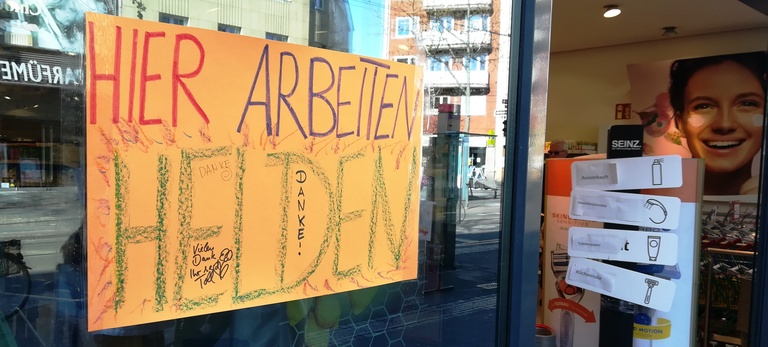 HIER ARBEITEN
HELDEN
DANKE
DANKE!
Vielen
Dank
Ihr seid
Toll
SEINZ.
Ausverkauft
MOTION